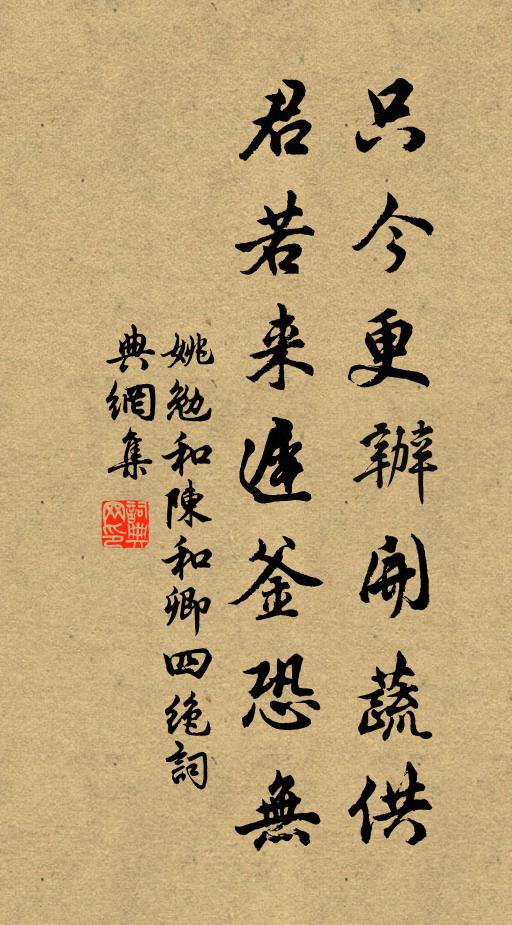 只今更辦開蔬供
君若来遲釜恐無
姚勉和陳和卿四絶詞
典網集
詞典
网印